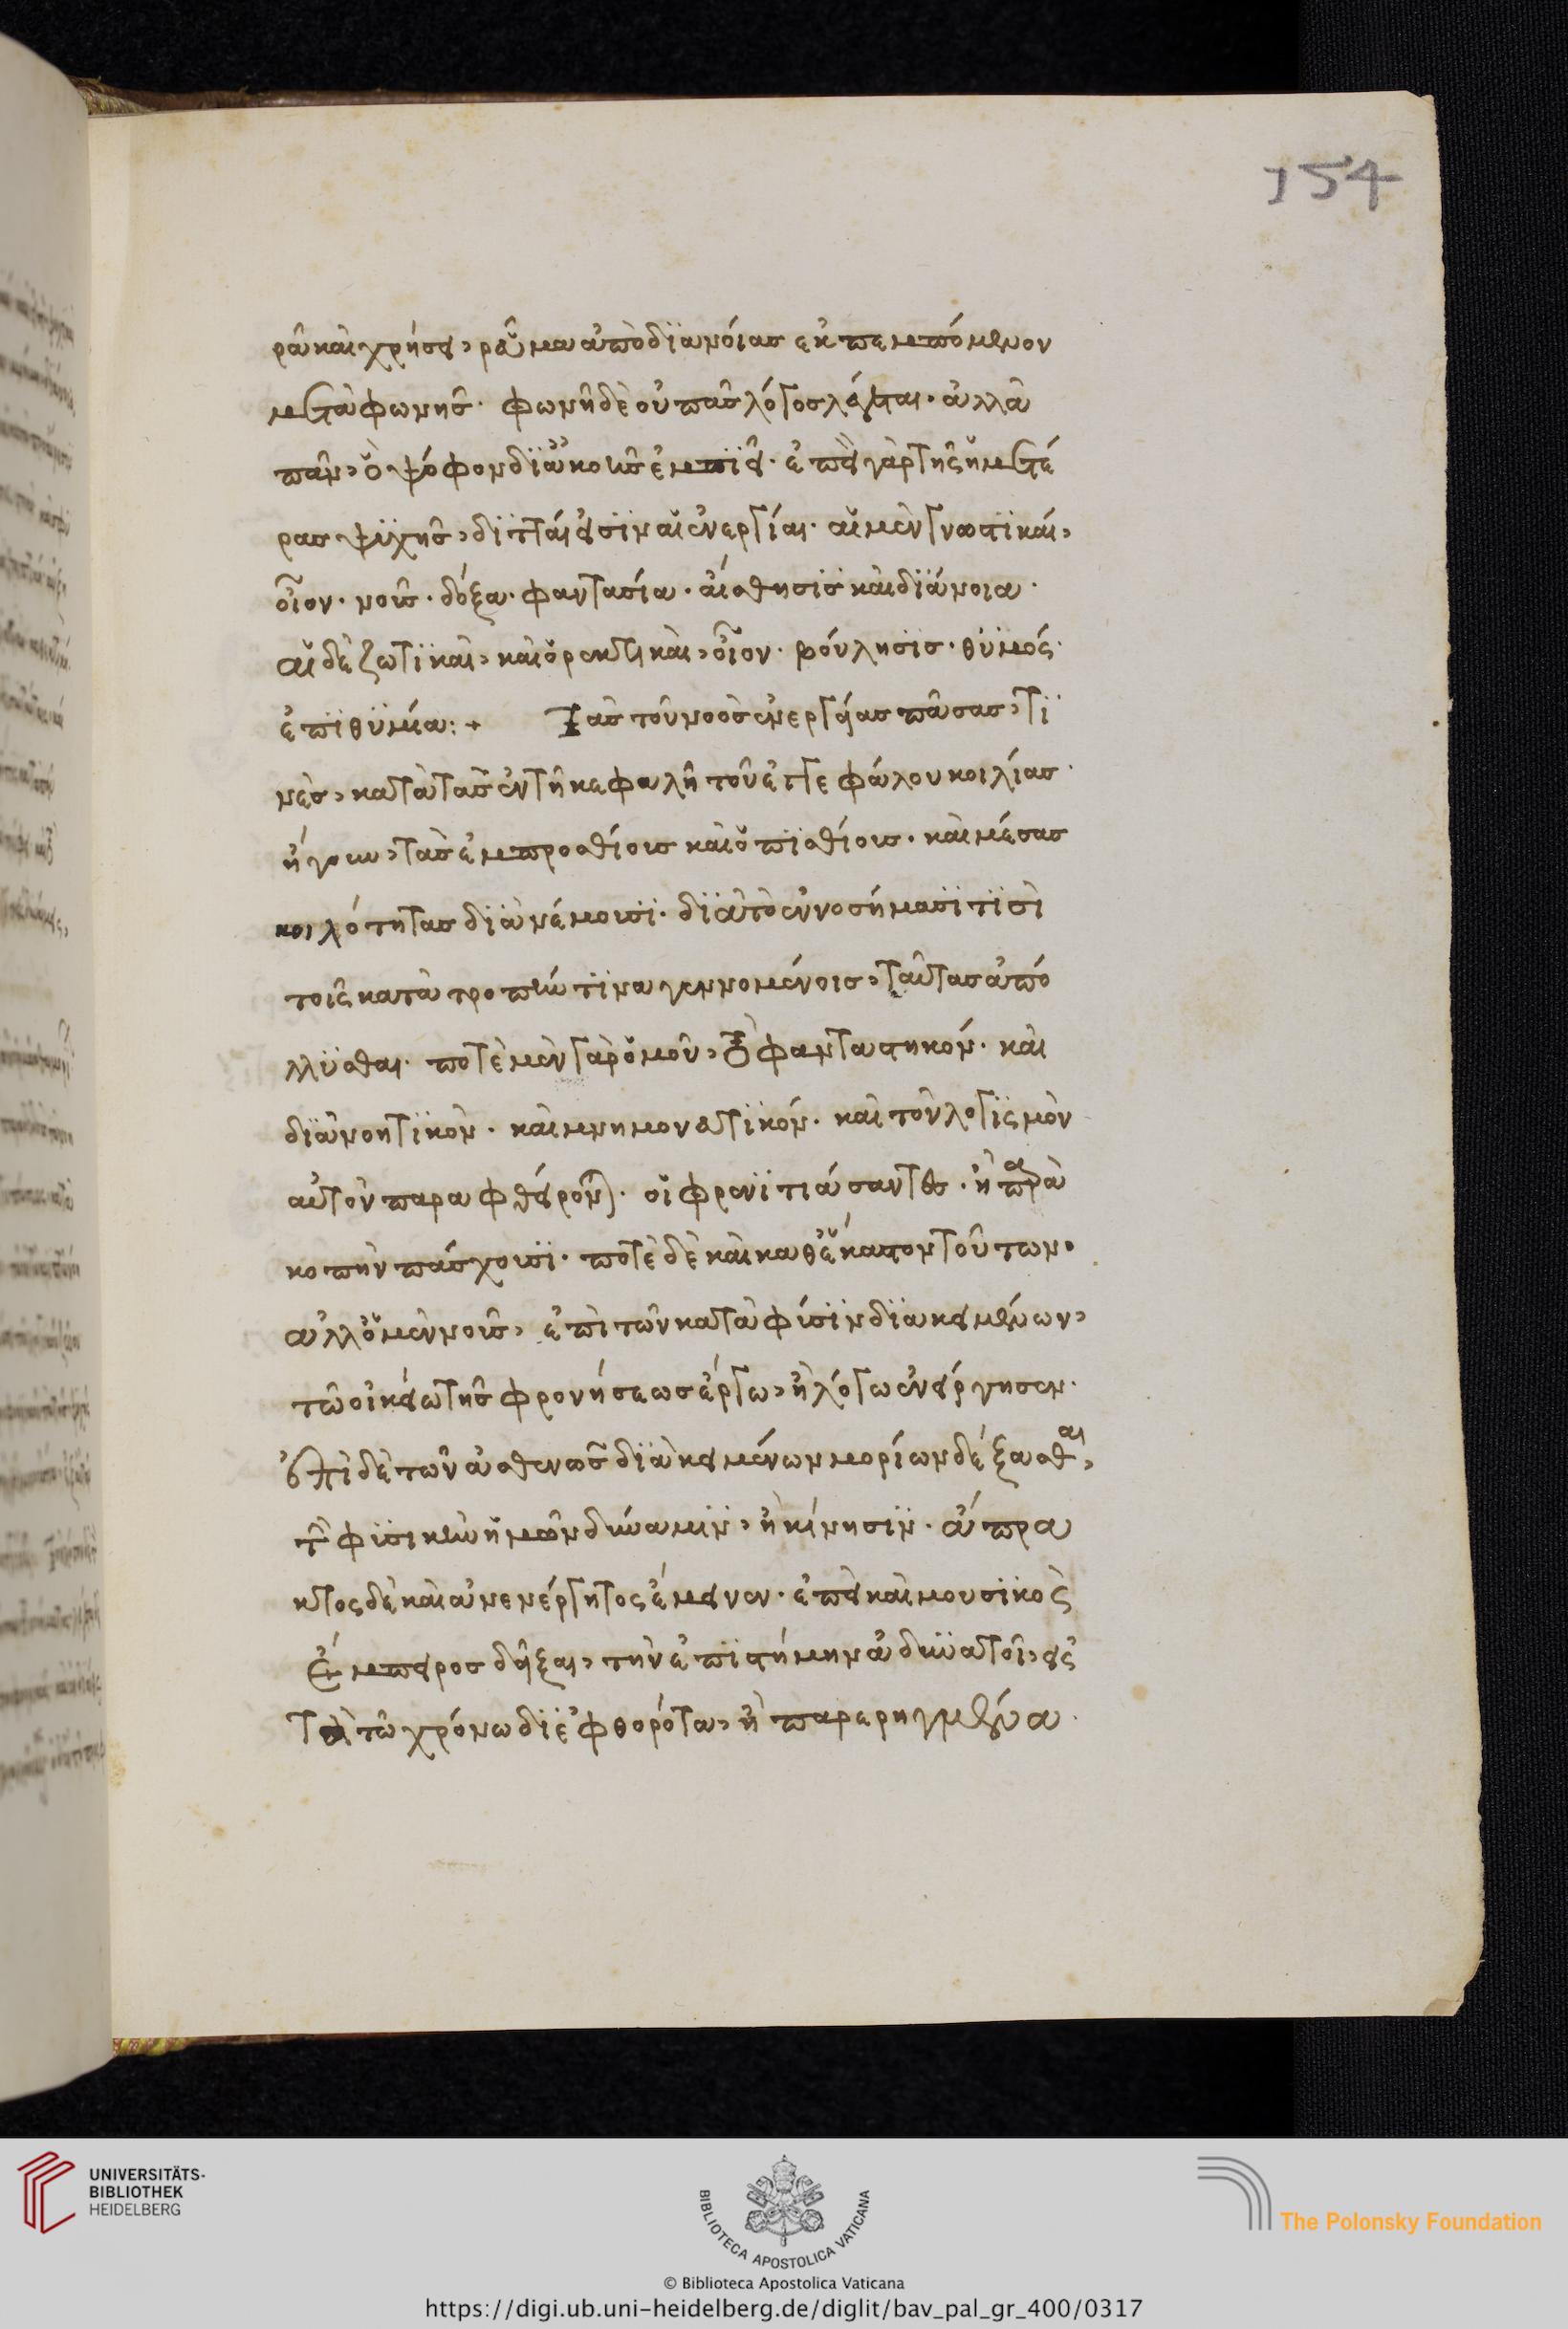 154
ρᾶ καὶ χρήσει, ῥεῦμα ἀπὸ διανοίας ἐκπεμπόμενον
μετὰ φωνῆς. φωνὴ δὲ οὐ πᾶς λόγος λέγεται. ἀλλὰ
πᾶν, ὃ ψόφον δι ἀκοῆς ἐμποιεῖ. ἐπεὶ γὰρ τῆς ἡμετέ
ρας ψυχῆς, διτταί εἰσιν αἱ ἐνεργίαι. αἱ μὲν γνωστικαί,
οἷον. νοῦς. δόξα. φαντασία. αἴσθησις καὶ διάνοια.
αἱ δὲ ζωτικαὶ, καὶ ὀρεκτικαὶ, οἷον. βούλησις. θυμός.
ἐπιθυμία:+ Τὰς τοῦ νοὸς ἐνεργείας πάσας, τι
νὲς, κατὰ τὰς ἐν τῆ κεφαλῆ τοῦ ἐγκεφάλου κοιλίας.
ἤγουν, τὰς ἐμπροσθίους καὶ ὀπισθίους. καὶ μέσας
κοιλότητας διανέμουσι. διὰ τὸ ἐν νοσήμασι τισὶ
τοῖς κατὰ τροπήν τινα γεννομένοις, ταύτας ἀπό
λλυσθαι. ποτὲ μὲν γὰρ ὁμοῦ, τὸ φανταστηκόν. καὶ
διανοητικὸν. καὶ μνημονευτικόν. καὶ τὸν λογισμὸν
αὐτὸν παραφθείρουσιν. οἱ φρενιτιάσαντες. ἢ παρα
κοπὴν πάσχουσι. ποτὲ δὲ καὶ καθ ἕκαστον τούτων.
ἀλλ ὁ μὲν νοῦς, ἐπὶ τῶν κατὰ φύσιν διακειμένων,
τῶ οἰκείω τῆς φρονήσεως ἔργω, ἢ λόγω ἐνείργησεν.
ἐπὶ δὲ τῶν ἀσθενῶς διακειμένων μορίων δέξασθαι,
τὴν φυσικὴν ἡμῶν δύναμιν, ἢ κίνησιν. ἄπρα
κτος δὲ καὶ ἀνενέργητος ἔμεινεν. ἐπεὶ καὶ μουσικὸς
ἔμπειρος δεῖξαι, τὴν ἐπιστήμην ἀδυνατοῖ, εἰς
τὰ τῶ χρόνω διεφθορότα, ἢ παρερηγμένα.
UNIVERSITÄTS-
BIBLIOTHEK
HEIDELBERG
BIBLIOTECA APOSTOLICA VATICANA
The Polonsky Foundation
© Biblioteca Apostolica Vaticana
https://digi.ub.uni-heidelberg.de/diglit/bav_pal_gr_400/0317